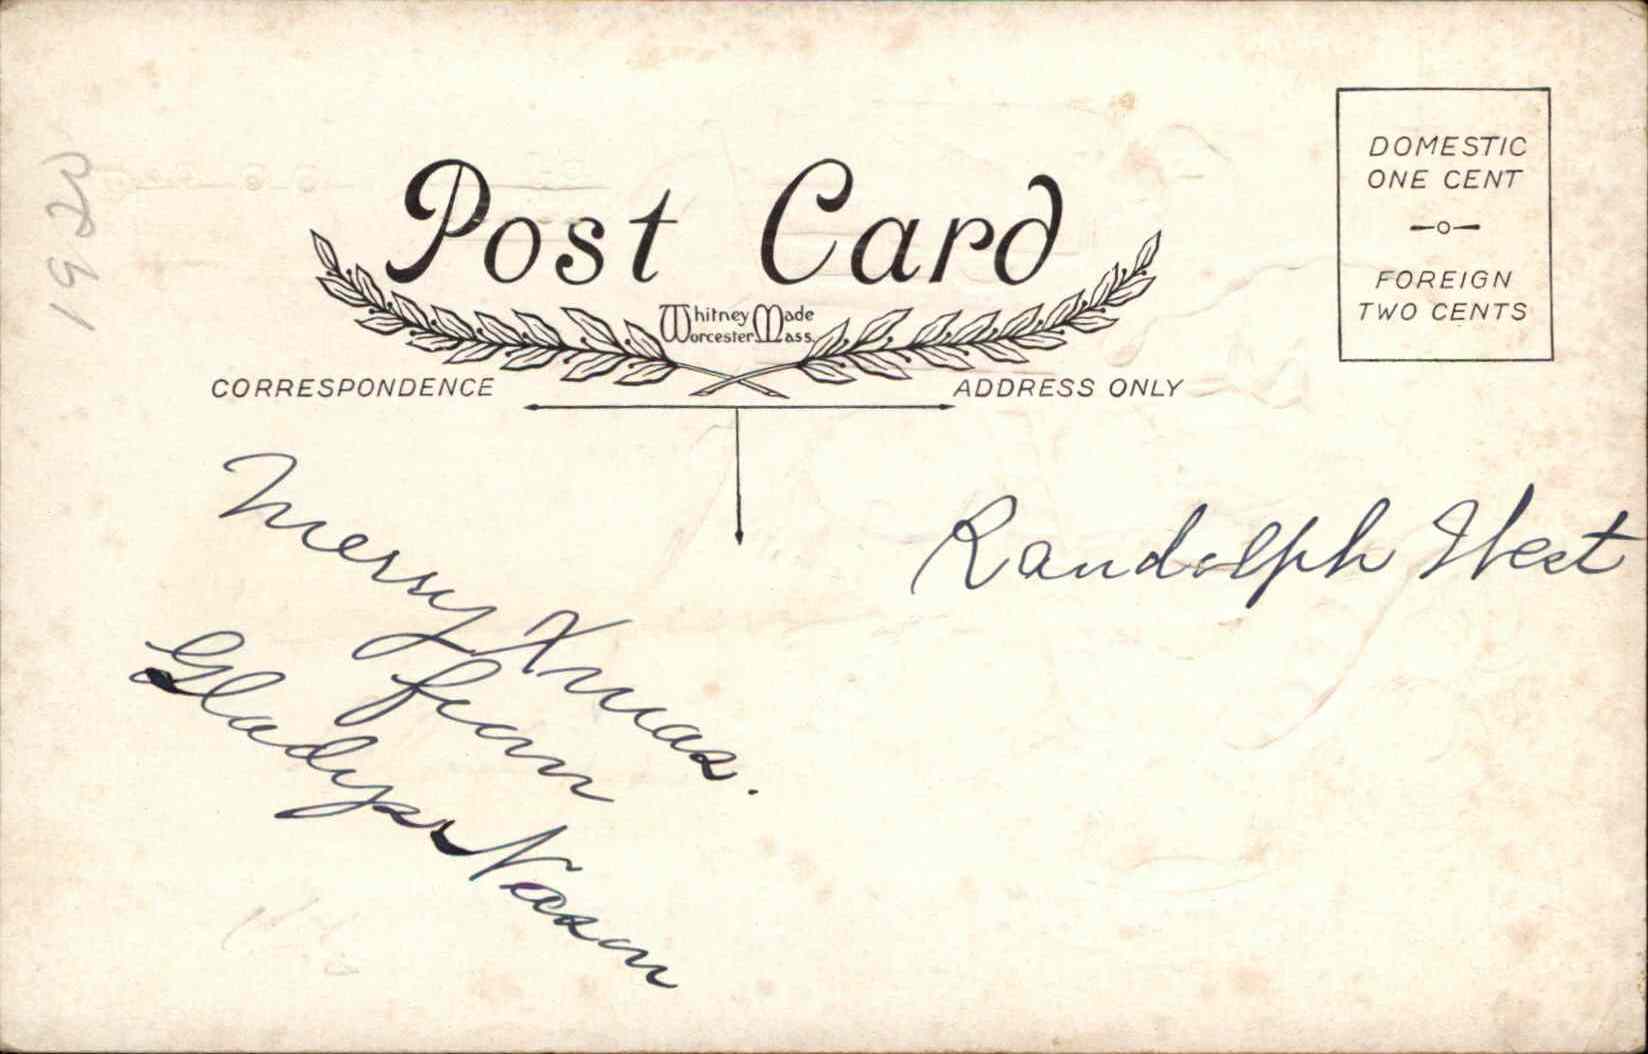 1920
Post Card
Whitney Made
Worcester Mass.
DOMESTIC
ONE CENT
FOREIGN
TWO CENTS
CORRESPONDENCE
ADDRESS ONLY
Merry Xmas.
from
Gladys Nason
Randolph West